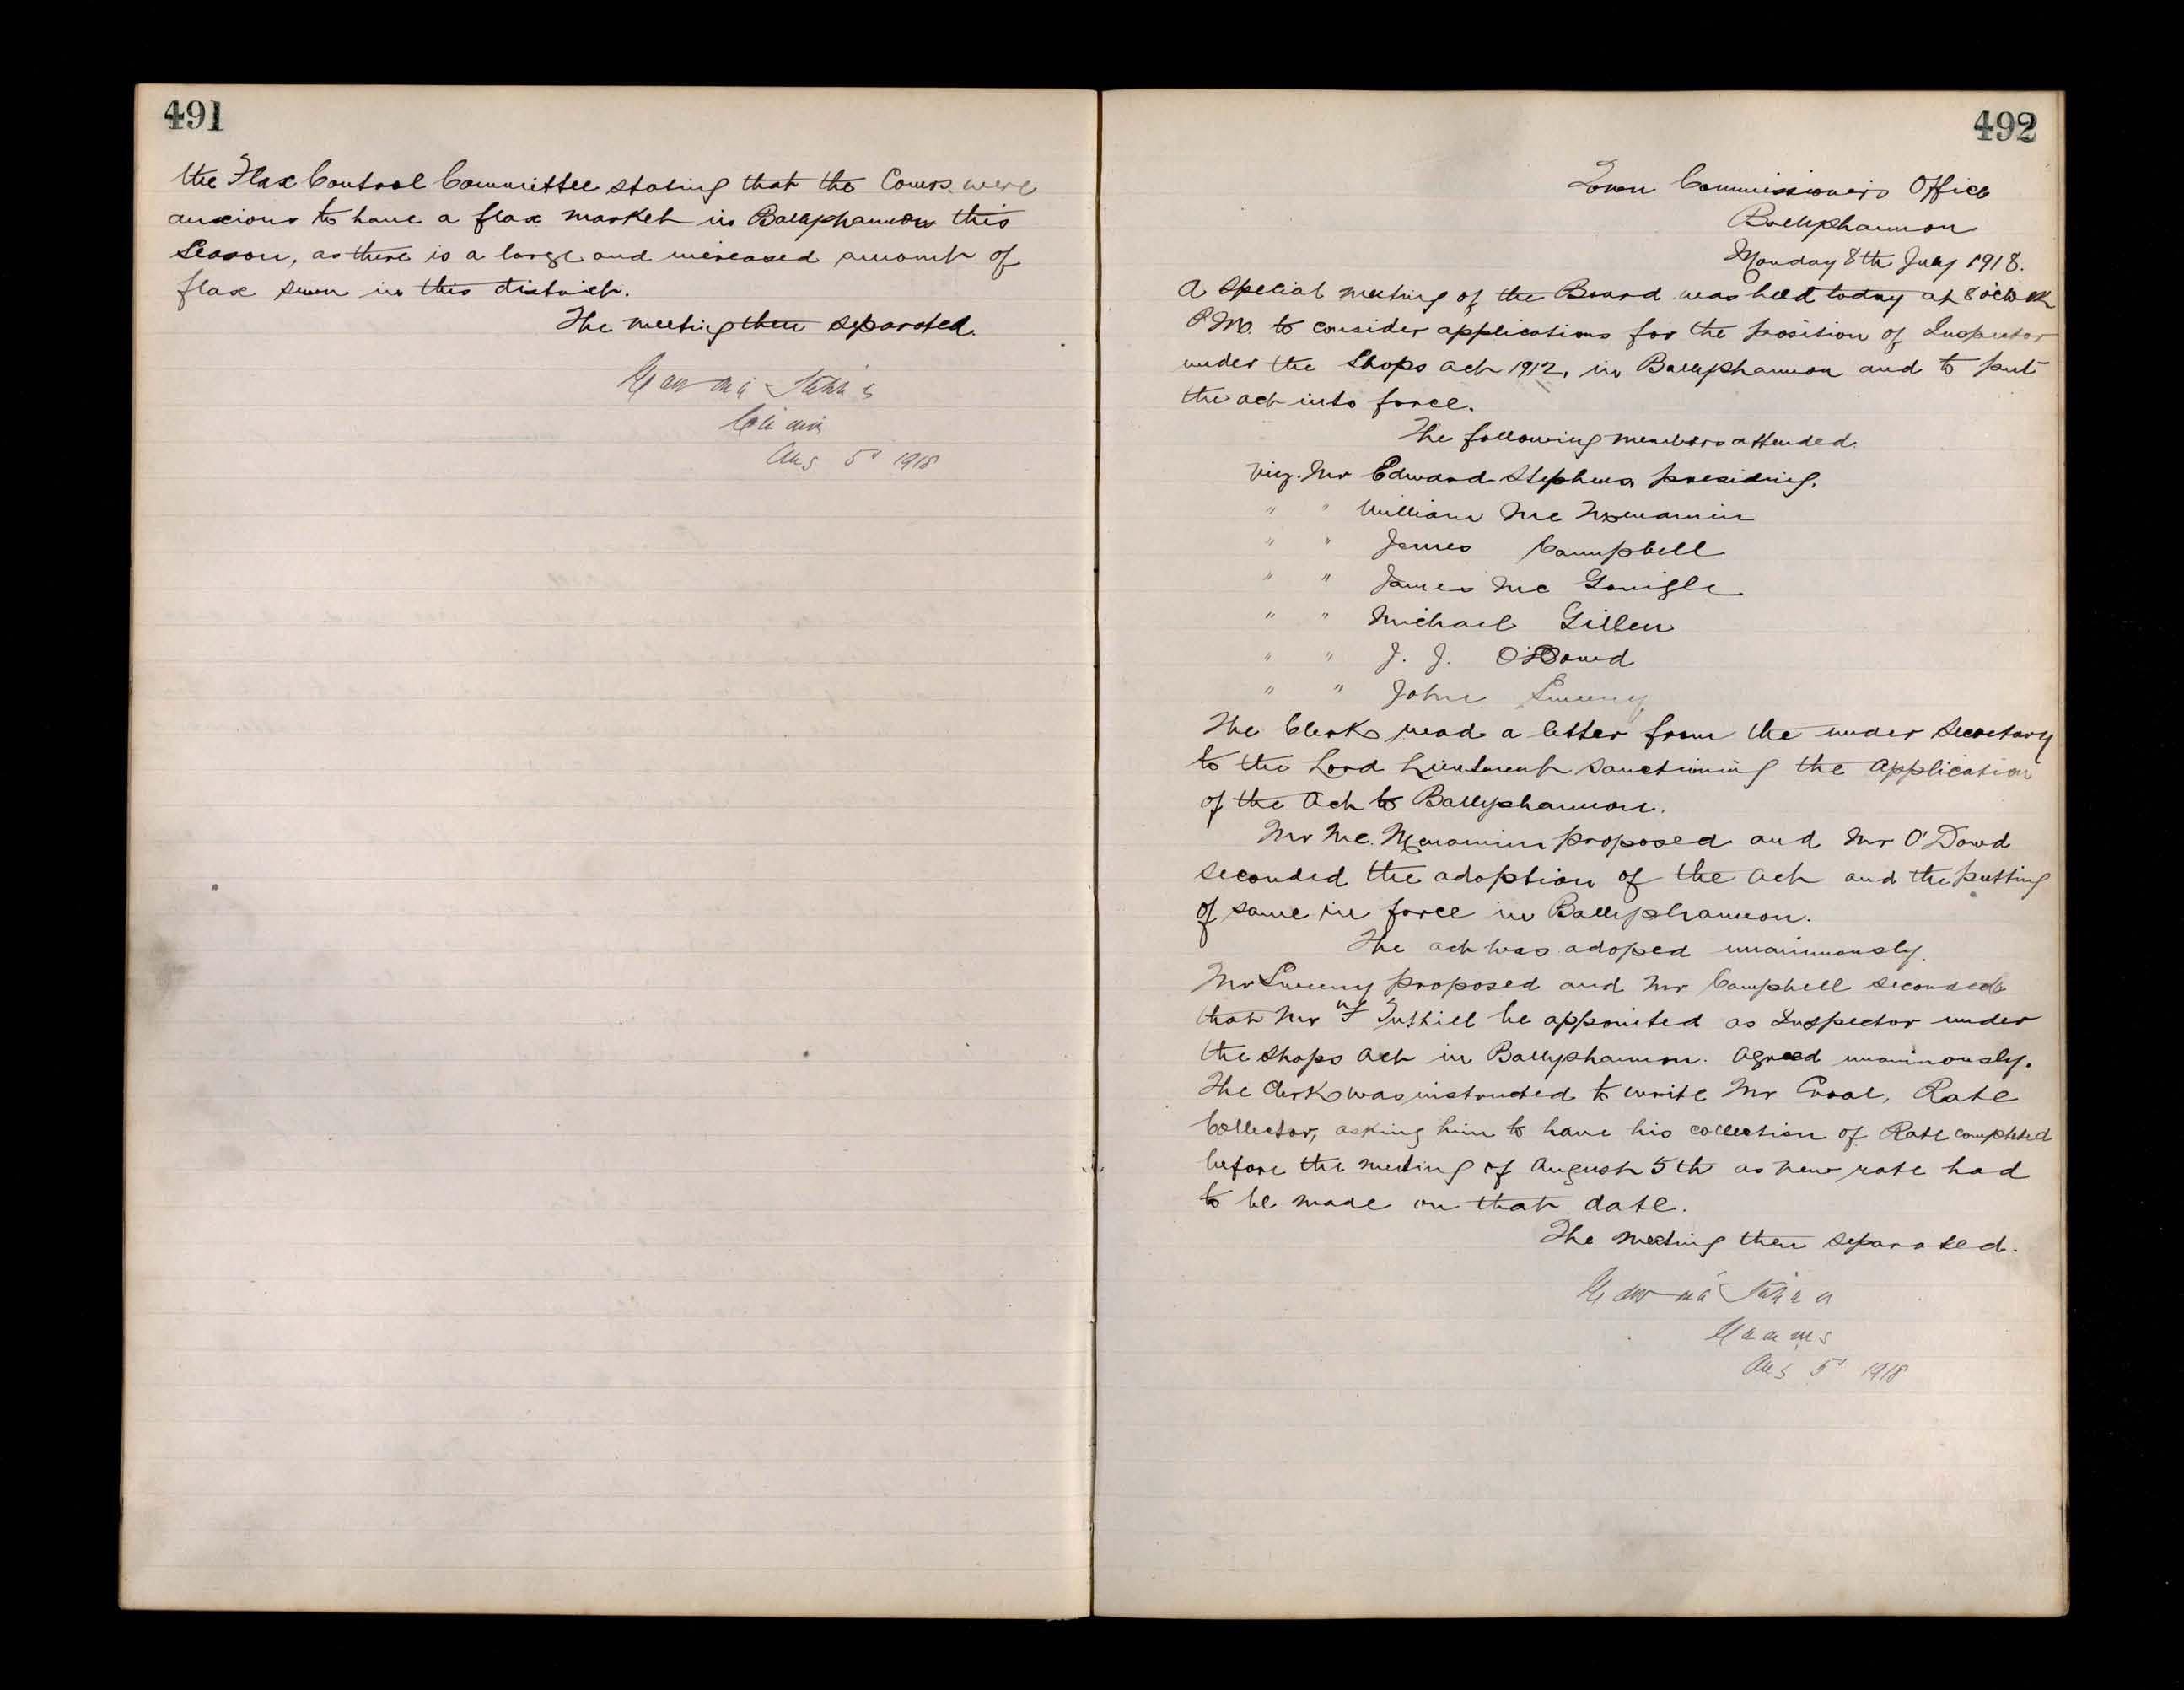 491
the Flax Control Committee stating that the Comrs. were
anxious to have a flax market in Ballyshannon this
Season, as there is a large and increased amount of
flax sown in this district.
The meeting then separated.
Edward Stephens
Chairman
Aug 5th 1918
492
Town Commissioners Office
Ballyshannon
Monday 8th July 1918.
A Special meeting of the Board was held today at 8 o'clock
P.M. to consider applications for the position of Inspector
under the Shops Act 1912, in Ballyshannon and to put
the act into force.
The following members attended.
viz. Mr Edward Stephens presiding.
" " William Mc Menamin
" " James Campbell
" " James Mc Gonigle
" " Michael Gillen
" " J. J. O'Dowd
" " John Sweeny
The Clerk read a letter from the under Secretary
to the Lord Lieutenant sanctioning the application
of the Act to Ballyshannon.
Mr Mc. Menamin proposed and Mr O'Dowd
seconded the adoption of the Act and the putting
of same in force in Ballyshannon.
The act was adoped unanimously.
Mr Sweeny proposed and Mr Campbell seconded
that Mr Tuthill be appointed as Inspector under
the Shops Act in Ballyshannon. Agreed unanimously.
The Clerk was instructed to write Mr Croal, Rate
Collector, asking him to have his collection of Rate completed
before the meeting of August 5th as new rate had
to be made on that date.
The meeting then separated.
Edward Stephens
Aug 5th 1918